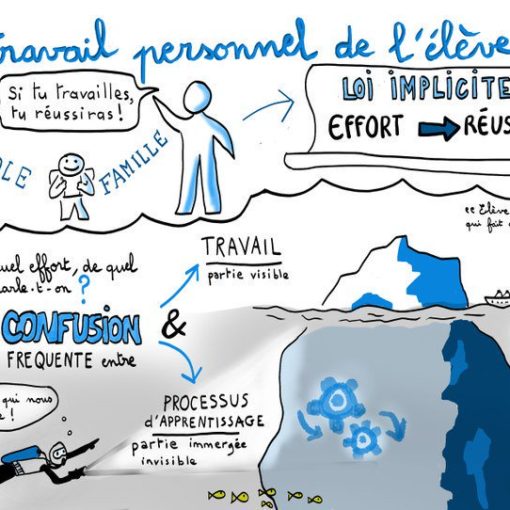 travail personnel de l'élève
Si tu travailles,
tu réussiras !
LOI IMPLICITE
EFFORT RÉUS
OLE
FAMILLE
" Elève
qui fait
quel effort, de quel
parle-t-on ?
TRAVAIL
partie visible
CONFUSION &
FREQUENTE entre
qui nous
!
PROCESSUS
D'APPRENTISSAGE
partie immergée
invisible